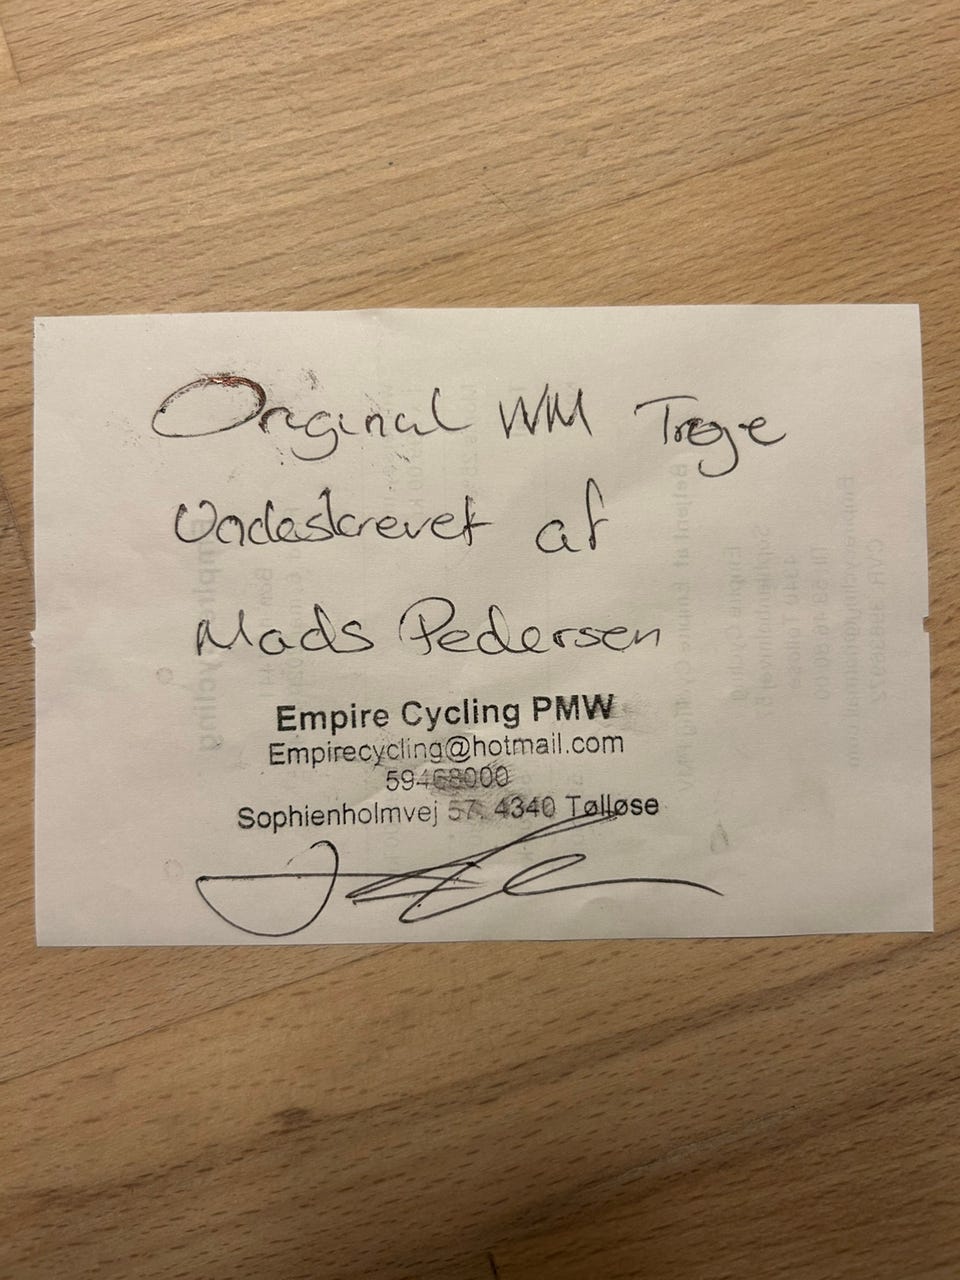 Original WM Trøje
Undeskrevet af
Mads Pedersen
Empire Cycling PMW
Empirecycling@hotmail.com
59468000
Sophienholmvej 57. 4340 Tølløse